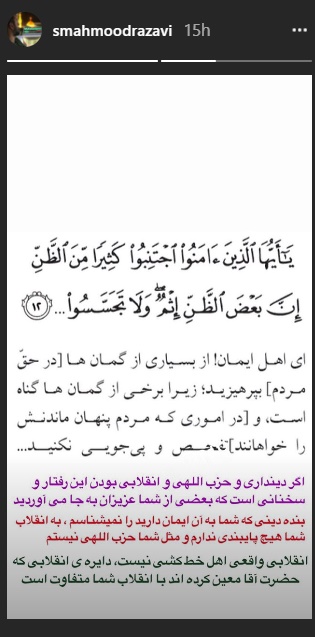 smahmoodrazavi 15h
يَٰٓأَيُّهَا ٱلَّذِينَ ءَامَنُوا ٱجْتَنِبُوا كَثِيرًا مِّنَ ٱلظَّنِّ
إِنَّ بَعْضَ ٱلظَّنِّ إِثْمٌ ۖ وَلَا تَجَسَّسُوا ... ١٢
ای اهل ایمان! از بسیاری از گمان ها [در حقّ
مردم] بپرهیزید؛ زیرا برخی از گمان ها گناه
است، و [در اموری که مردم پنهان ماندنش
را خواهانند] تفحص و پی‌جویی نکنید...
اگر دینداری و حزب اللهی و انقلابی بودن این رفتار و
سخنانی است که بعضی از شما عزیزان به جا می آوردید
بنده دینی که شما به آن ایمان دارید را نمیشناسم ، به انقلاب
شما هیچ پایبندی ندارم و مثل شما حزب اللهی نیستم
انقلابی واقعی اهل خط کشی نیست، دایره ی انقلابی که
حضرت آقا معین کرده اند با انقلاب شما متفاوت است